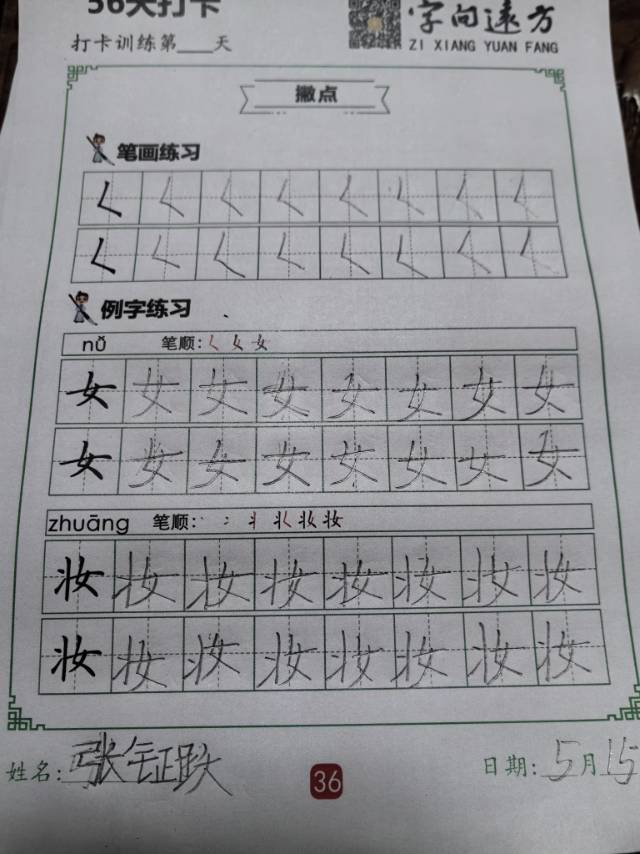 56天打卡
字向远方
打卡训练第___天
ZI XIANG YUAN FANG
撇点
笔画练习
𡿨 𡿨 𡿨 𡿨 𡿨 𡿨 𡿨 𡿨
𡿨 𡿨 𡿨 𡿨 𡿨 𡿨 𡿨 𡿨
例字练习
nǚ 笔顺: 𡿨 女 女
女 女 女 女 女 女 女 女
女 女 女 女 女 女 女 女
zhuāng 笔顺: 丶 冫 丬 妆 妆 妆
妆 妆 妆 妆 妆 妆 妆 妆
妆 妆 妆 妆 妆 妆 妆 妆
姓名: 张钰跃 日期: 5月15
36